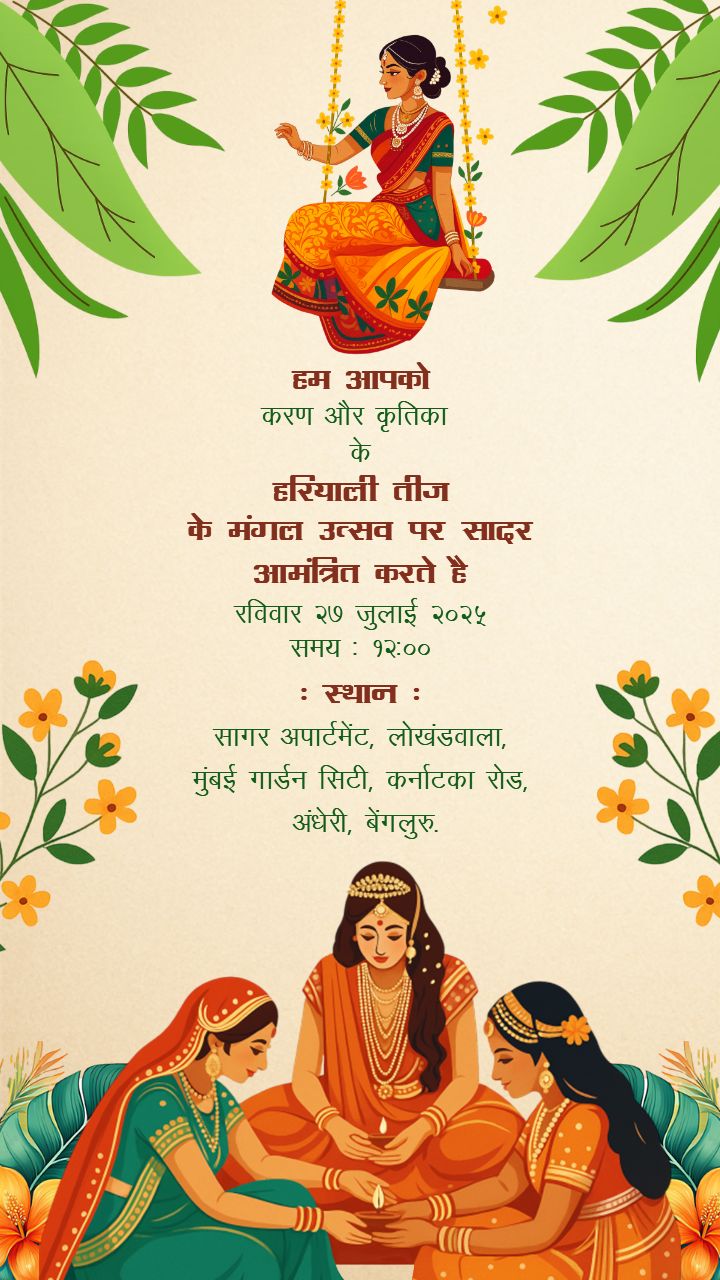 हम आपको
करण और कृतिका
के
हरियाली तीज
के मंगल उत्सव पर सादर
आमंत्रित करते है
रविवार २७ जुलाई २०२५
समय : १२:००
: स्थान :
सागर अपार्टमेंट, लोखंडवाला,
मुंबई गार्डन सिटी, कर्नाटका रोड,
अंधेरी, बेंगलुरु.